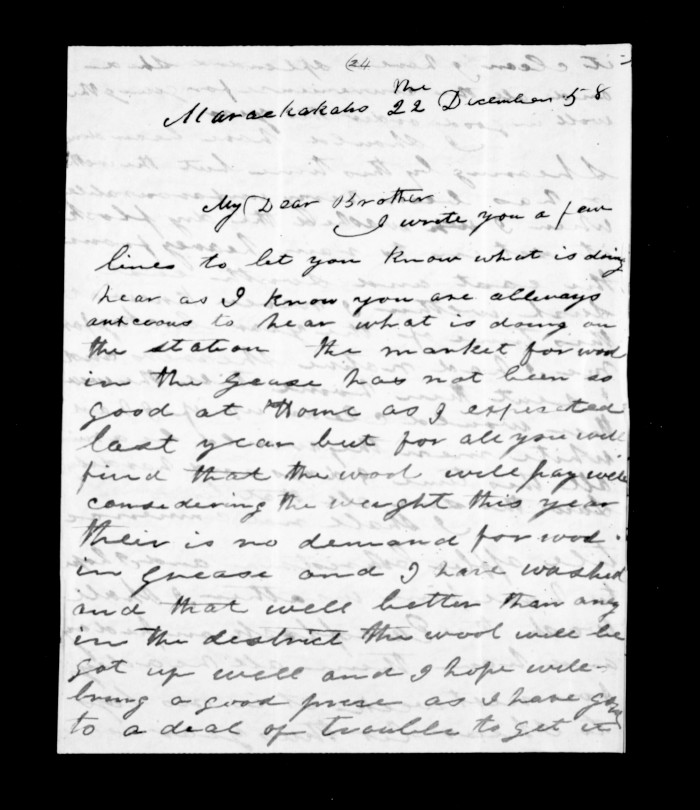 (24
Maraekakaho the 22 December 58
My Dear Brother
I wrote you a few
lines to let you know what is doing
hear as I know you are allways
anxcious to hear what is doing on
the station the market for wool
in the Gease has not been so
good at Home as I expected
last year but for all you will
find that the wool will pay well
considering the weight this year
their is no demand for wool
in grease and I have washed
and that well better than any
in the district the wool will be
got up well and I hope will
bring a good prise as I have gon
to a deal of trouble to get it